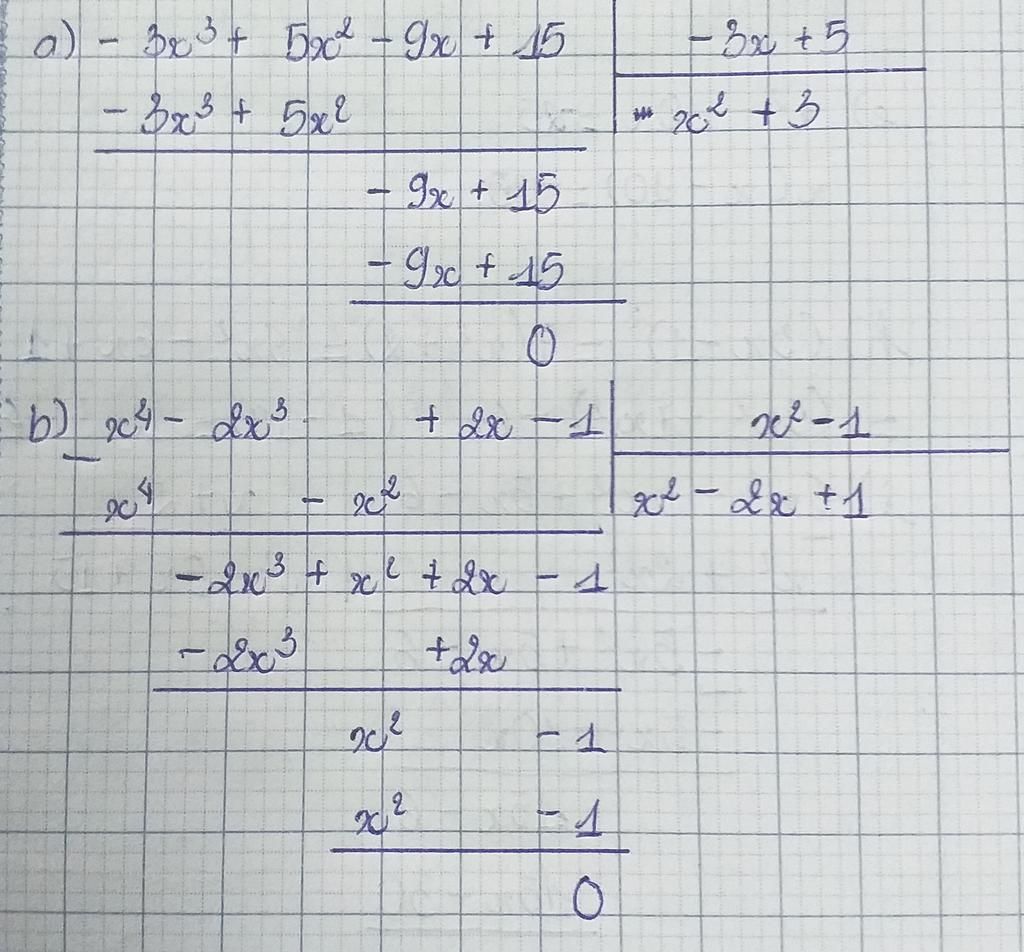 a) - 3x³ + 5x² - 9x + 15 | - 3x + 5
- 3x³ + 5x² | x² + 3
- 9x + 15
- 9x + 15
0
b) x⁴ - 2x³ + 2x - 1 | x² - 1
- x⁴ - x² | x² - 2x + 1
- 2x³ + x² + 2x - 1
- 2x³ + 2x
x² - 1
x² - 1
0